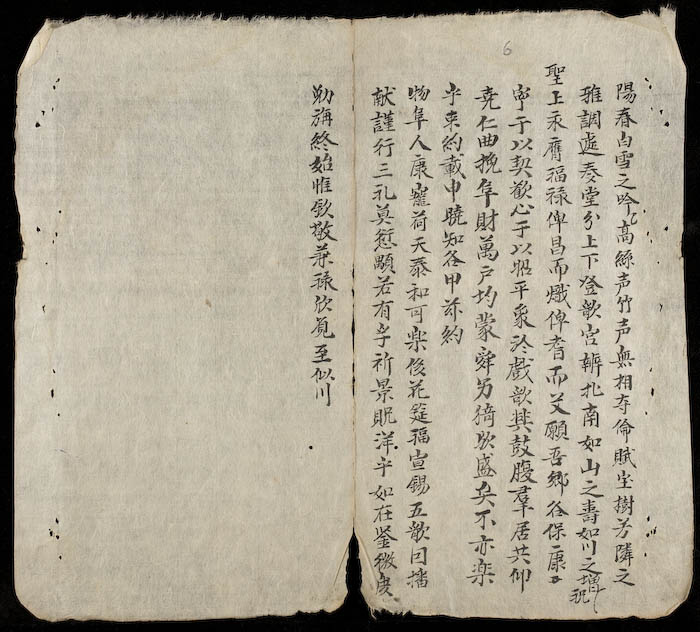 6
陽春白雪之吟高絲声竹声無相夺倫賦宝樹芳隣之
雅調處奏堂分上下登歌宮辨北南如山之壽如川之增祝
聖上永膺福祿俾昌而熾俾耆而艾願吾鄉各保康
寧于以契歡心于以昭平象於戲歌其鼓腹羣居共仰
堯仁曲挽阜財萬户均蒙舜猗欤盛矣不亦楽
乎来約載申曉知各甲茲約
物阜人康寵荷天泰和可楽後花筵福宣錫五歌曰播
献謹行三礼奠顒若有孚祈景貺洋乎如在鑒微虔
旃終始惟欽敬茀祿欣至似川